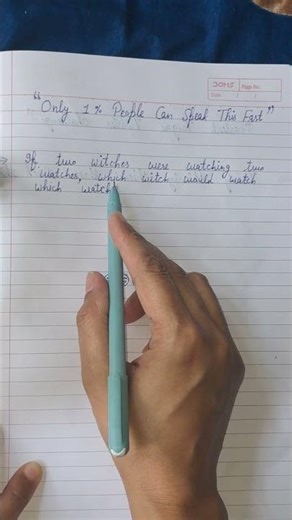 Page No.
Date
"Only 1% People Can Speak This Fast"
If two witches were watching two
watches, which witch would watch
which watch